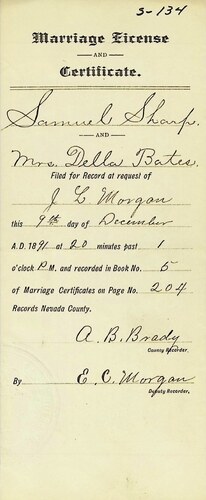 S-134
Marriage License
AND
Certificate.
Samuel Sharp.
AND
Mrs. Della Bates
Filed for Record at request of
J L Morgan
this 9th day of December
A.D. 1891 at 20 minutes past 1
o'clock P. M. and recorded in Book No. 5
of Marriage Certificates on Page No. 204
Records Nevada County.
A. B. Brady
County Recorder.
By E. C. Morgan
Deputy Recorder.